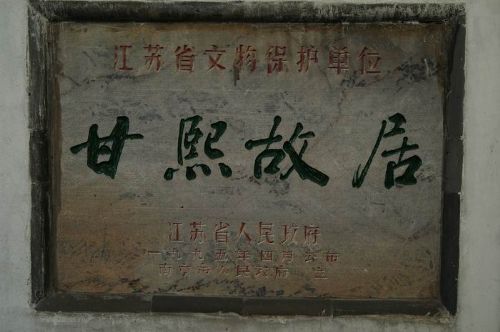 江苏省文物保护单位
甘熙故居
江苏省人民政府
一九九五年四月公布
南京市人民政府 立